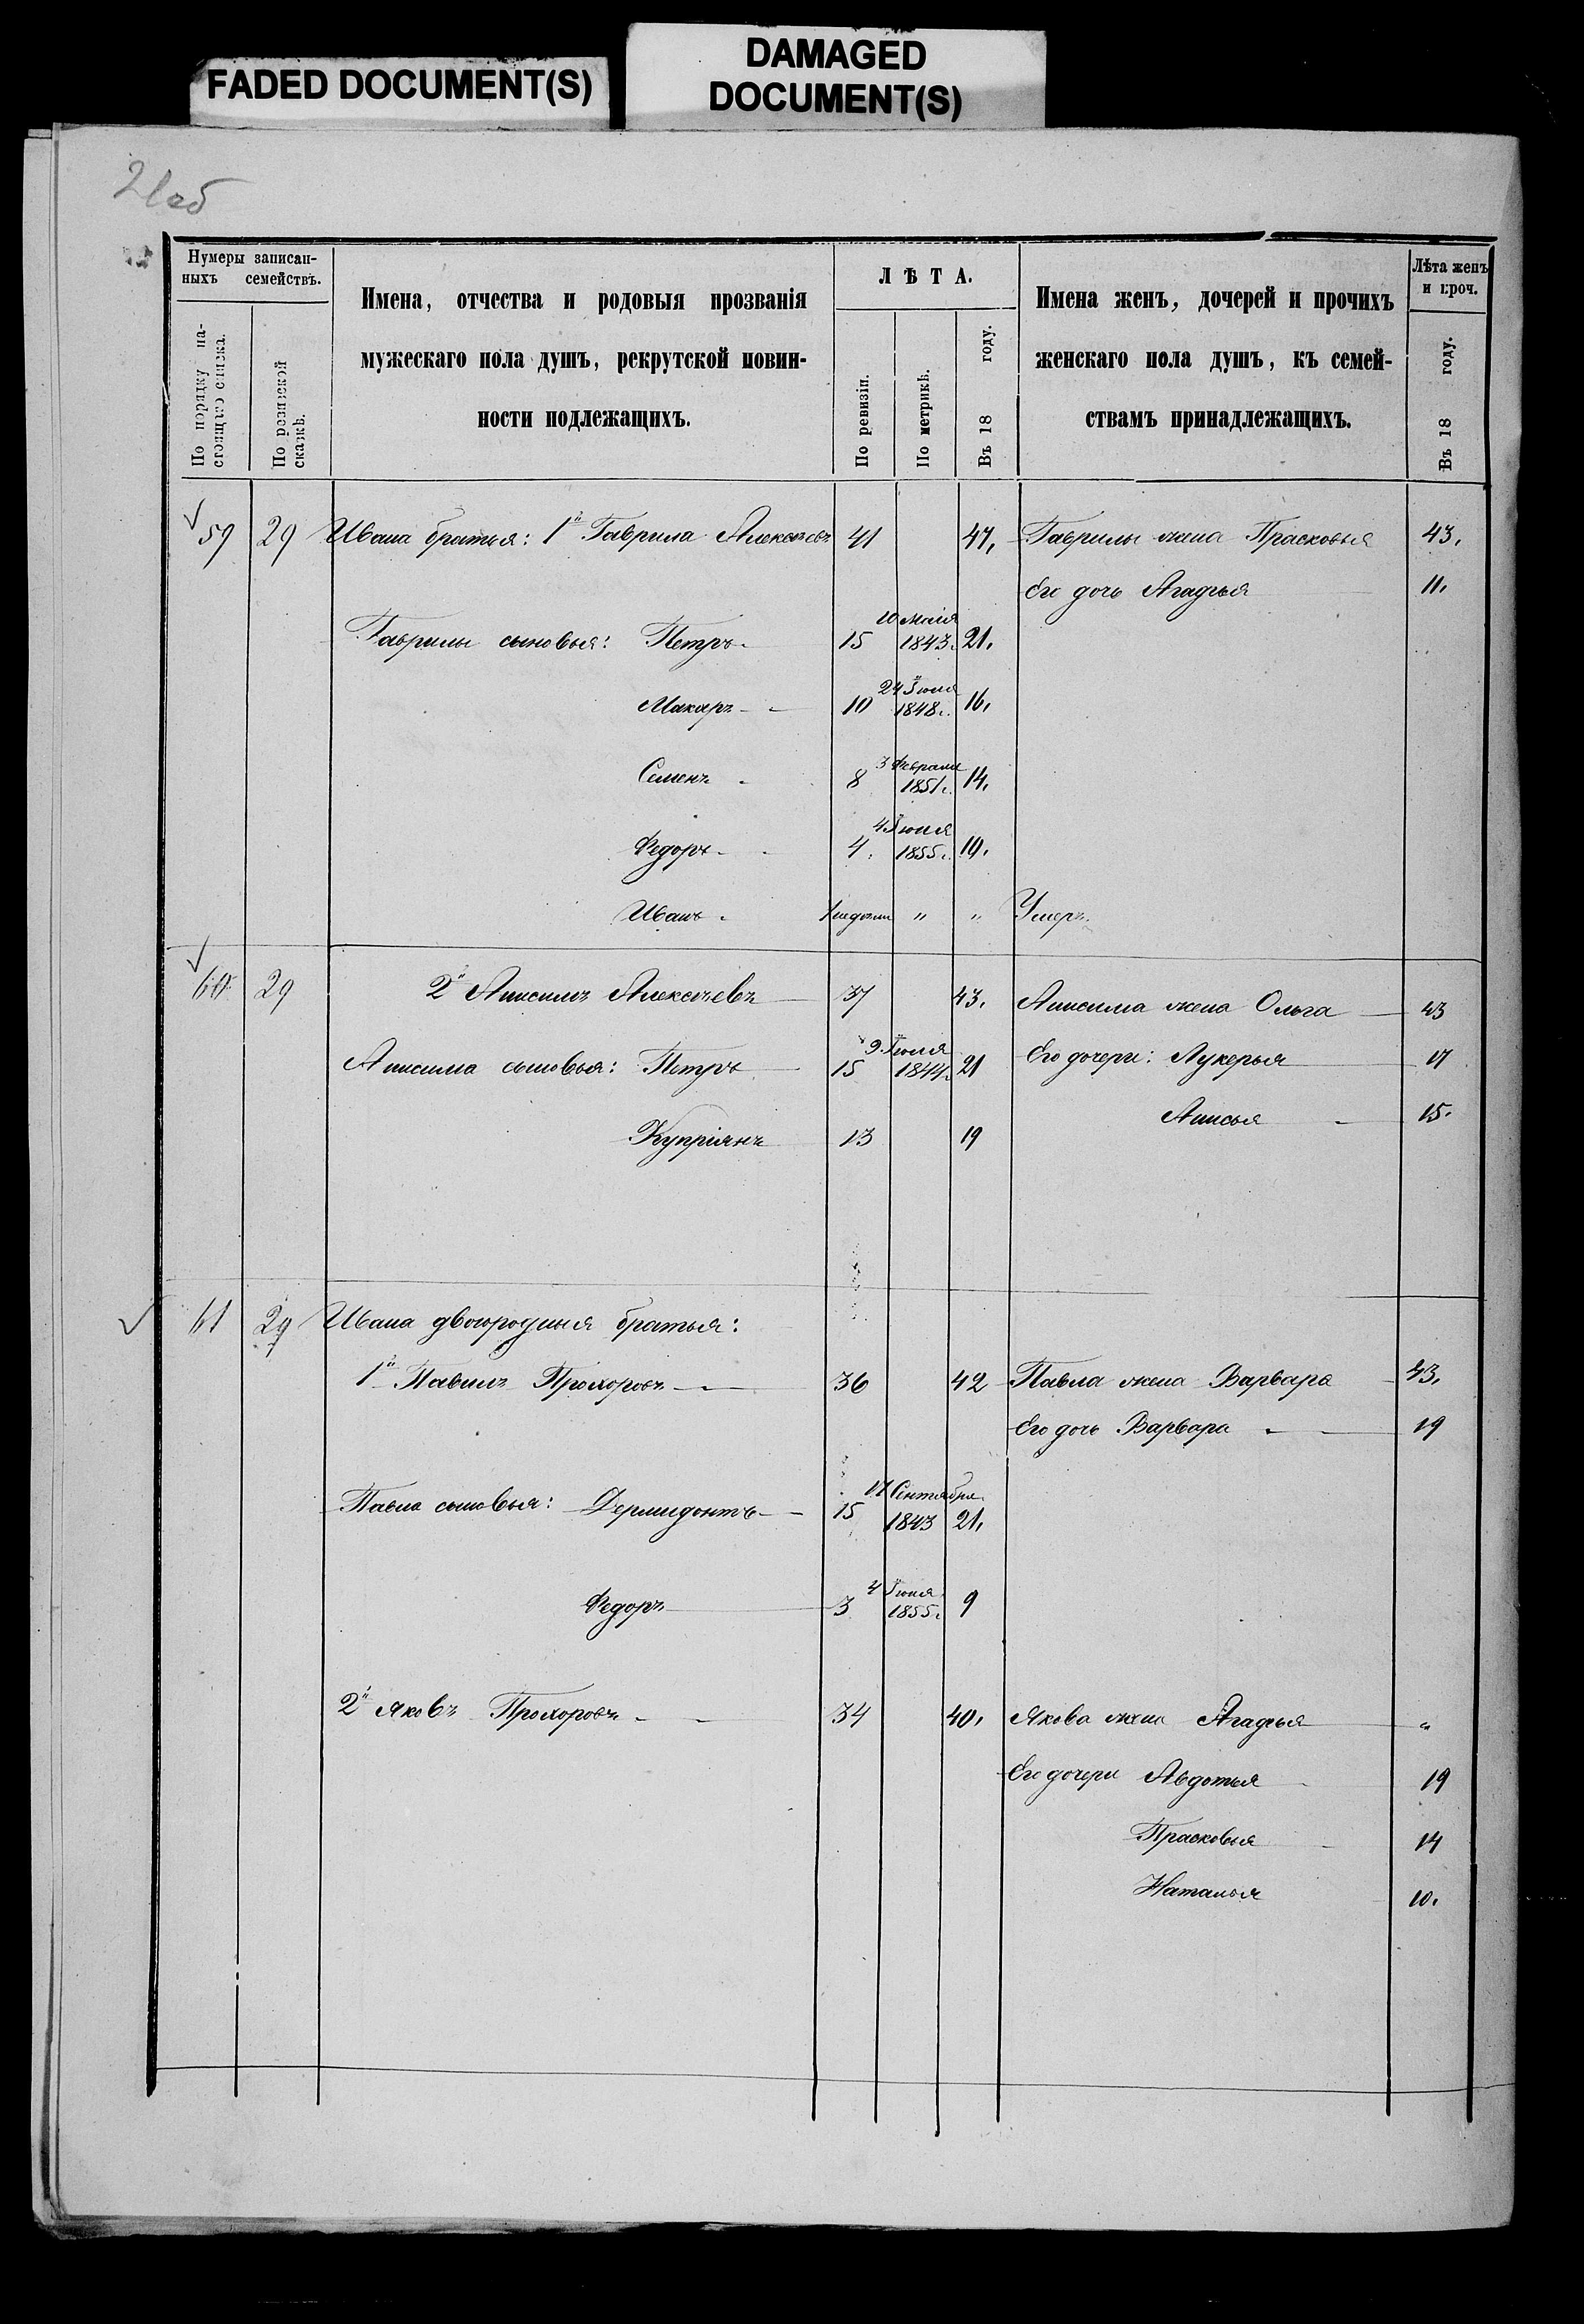 FADED DOCUMENT(S)
DAMAGED
DOCUMENT(S)
21об
Нумеры записан-
ныхъ семействъ.
По порядку на-
стоящаго списка.
По ревизской
сказкѣ.
Имена, отчества и родовыя прозванія
мужескаго пола душъ, рекрутской повин-
ности подлежащихъ.
ЛѢТА.
По ревизіи.
По метрикѣ.
Въ 18 году.
Имена женъ, дочерей и прочихъ
женскаго пола душъ, къ семей-
ствамъ принадлежащихъ.
Лѣта женъ
и проч.
Въ 18 году.
59 29 Ивана братья: 1й Гаврила Алексѣевъ 41 47. Гаврилы жена Прасковья 43.
Его дочь Агафья 11.
Гаврилы сыновья: Петръ 15 10 Маія 1843. 21.
Макаръ 10 24 Іюля 1848г. 16.
Семенъ 8 3 Февраля 1851г. 14.
Федоръ 4. 4 Іюня 1855г. 10.
Иванъ 1 недѣли " " Умеръ.
60 29 2й Анисимъ Алексѣевъ 37 43. Анисима жена Ольга 43
Анисима сыновья: Петръ 15 9 Іюля 1844г. 21 Его дочери: Лукерья 17
Анисья 15.
Купріянъ 13 19
61 29 Ивана двоюродныя братья:
1й Павелъ Прохоровъ 36 42 Павла жена Варвара 43.
Его дочь Варвара 19
Павла сыновья: Дермидонтъ 15 17 Сентября 1843 21.
Федоръ 3 4 Іюня 1855г. 9
2й Яковъ Прохоровъ 34 40. Якова жена Агафья "
Его дочери Авдотья 19
Прасковья 14
Наталья 10.